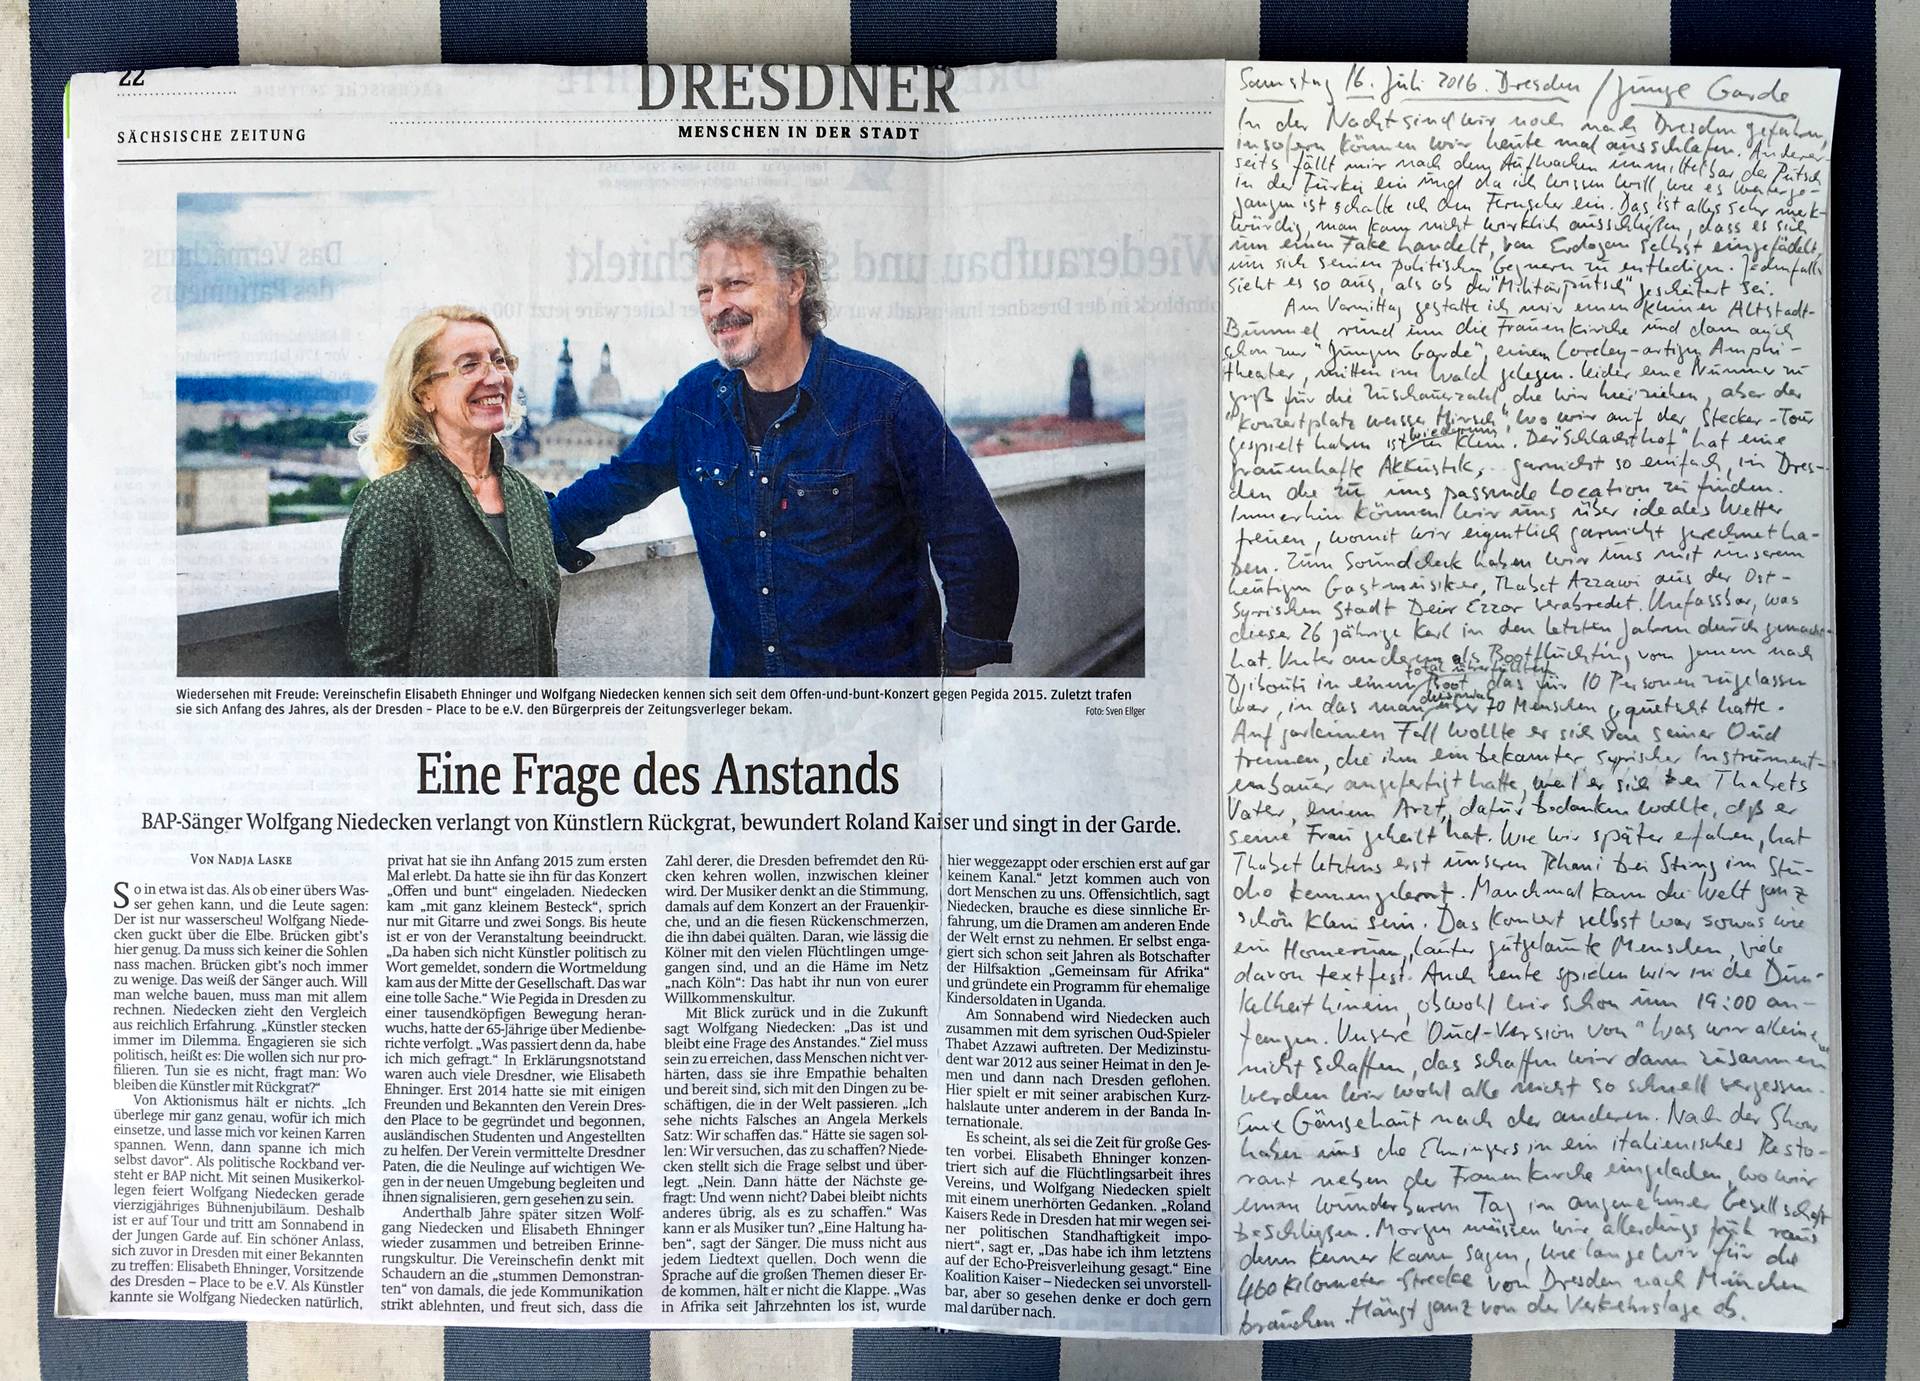 22
DRESDNER
SÄCHSISCHE ZEITUNG
MENSCHEN IN DER STADT
Wiedersehen mit Freude: Vereinschefin Elisabeth Ehninger und Wolfgang Niedecken kennen sich seit dem Offen-und-bunt-Konzert gegen Pegida 2015. Zuletzt trafen
sie sich Anfang des Jahres, als der Dresden – Place to be e.V. den Bürgerpreis der Zeitungsverleger bekam.
Foto: Sven Ellger
Eine Frage des Anstands
BAP-Sänger Wolfgang Niedecken verlangt von Künstlern Rückgrat, bewundert Roland Kaiser und singt in der Garde.
VON NADJA LASKE
So in etwa ist das. Als ob einer übers Was-
ser gehen kann, und die Leute sagen:
Der ist nur wasserscheu! Wolfgang Niede-
cken guckt über die Elbe. Brücken gibt's
hier genug. Da muss sich keiner die Sohlen
nass machen. Brücken gibt's noch immer
zu wenige. Das weiß der Sänger auch. Will
man welche bauen, muss man mit allem
rechnen. Niedecken zieht den Vergleich
aus reichlich Erfahrung. „Künstler stecken
immer im Dilemma. Engagieren sie sich
politisch, heißt es: Die wollen sich nur pro-
filieren. Tun sie es nicht, fragt man: Wo
bleiben die Künstler mit Rückgrat?“
Von Aktionismus hält er nichts. „Ich
überlege mir ganz genau, wofür ich mich
einsetze, und lasse mich vor keinen Karren
spannen. Wenn, dann spanne ich mich
selbst davor“. Als politische Rockband ver-
steht er BAP nicht. Mit seinen Musikerkol-
legen feiert Wolfgang Niedecken gerade
vierzigjähriges Bühnenjubiläum. Deshalb
ist er auf Tour und tritt am Sonnabend in
der Jungen Garde auf. Ein schöner Anlass,
sich zuvor in Dresden mit einer Bekannten
zu treffen: Elisabeth Ehninger, Vorsitzende
des Dresden – Place to be e.V. Als Künstler
kannte sie Wolfgang Niedecken natürlich,
privat hat sie ihn Anfang 2015 zum ersten
Mal erlebt. Da hatte sie ihn für das Konzert
„Offen und bunt“ eingeladen. Niedecken
kam „mit ganz kleinem Besteck“, sprich
nur mit Gitarre und zwei Songs. Bis heute
ist er von der Veranstaltung beeindruckt.
„Da haben sich nicht Künstler politisch zu
Wort gemeldet, sondern die Wortmeldung
kam aus der Mitte der Gesellschaft. Das war
eine tolle Sache.“ Wie Pegida in Dresden zu
einer tausendköpfigen Bewegung heran-
wuchs, hatte der 65-Jährige über Medienbe-
richte verfolgt. „Was passiert denn da, habe
ich mich gefragt.“ In Erklärungsnotstand
waren auch viele Dresdner, wie Elisabeth
Ehninger. Erst 2014 hatte sie mit einigen
Freunden und Bekannten den Verein Dres-
den Place to be gegründet und begonnen,
ausländischen Studenten und Angestellten
zu helfen. Der Verein vermittelte Dresdner
Paten, die die Neulinge auf wichtigen We-
gen in der neuen Umgebung begleiten und
ihnen signalisieren, gern gesehen zu sein.
Anderthalb Jahre später sitzen Wolf-
gang Niedecken und Elisabeth Ehninger
wieder zusammen und betreiben Erinne-
rungskultur. Die Vereinschefin denkt mit
Schaudern an die „stummen Demonstran-
ten“ von damals, die jede Kommunikation
strikt ablehnten, und freut sich, dass die
Zahl derer, die Dresden befremdet den Rü-
cken kehren wollen, inzwischen kleiner
wird. Der Musiker denkt an die Stimmung,
damals auf dem Konzert an der Frauenkir-
che, und an die fiesen Rückenschmerzen,
die ihn dabei quälten. Daran, wie lässig die
Kölner mit den vielen Flüchtlingen umge-
gangen sind, und an die Häme im Netz
„nach Köln“: Das habt ihr nun von eurer
Willkommenskultur.
Mit Blick zurück und in die Zukunft
sagt Wolfgang Niedecken: „Das ist und
bleibt eine Frage des Anstandes.“ Ziel muss
sein zu erreichen, dass Menschen nicht ver-
härten, dass sie ihre Empathie behalten
und bereit sind, sich mit den Dingen zu be-
schäftigen, die in der Welt passieren. „Ich
sehe nichts Falsches an Angela Merkels
Satz: Wir schaffen das.“ Hätte sie sagen sol-
len: Wir versuchen, das zu schaffen? Niede-
cken stellt sich die Frage selbst und über-
legt. „Nein. Dann hätte der Nächste ge-
fragt: Und wenn nicht? Dabei bleibt nichts
anderes übrig, als es zu schaffen.“ Was
kann er als Musiker tun? „Eine Haltung ha-
ben“, sagt der Sänger. Die muss nicht aus
jedem Liedtext quellen. Doch wenn die
Sprache auf die großen Themen dieser Er-
de kommen, hält er nicht die Klappe. „Was
in Afrika seit Jahrzehnten los ist, wurde
hier weggezappt oder erschien erst auf gar
keinem Kanal.“ Jetzt kommen auch von
dort Menschen zu uns. Offensichtlich, sagt
Niedecken, brauche es diese sinnliche Er-
fahrung, um die Dramen am anderen Ende
der Welt ernst zu nehmen. Er selbst enga-
giert sich schon seit Jahren als Botschafter
der Hilfsaktion „Gemeinsam für Afrika“
und gründete ein Programm für ehemalige
Kindersoldaten in Uganda.
Am Sonnabend wird Niedecken auch
zusammen mit dem syrischen Oud-Spieler
Thabet Azzawi auftreten. Der Medizinstu-
dent war 2012 aus seiner Heimat in den Je-
men und dann nach Dresden geflohen.
Hier spielt er mit seiner arabischen Kurz-
halslaute unter anderem in der Banda In-
ternationale.
Es scheint, als sei die Zeit für große Ges-
ten vorbei. Elisabeth Ehninger konzen-
triert sich auf die Flüchtlingsarbeit ihres
Vereins, und Wolfgang Niedecken spielt
mit einem unerhörten Gedanken. „Roland
Kaisers Rede in Dresden hat mir wegen sei-
ner politischen Standhaftigkeit impo-
niert“, sagt er, „Das habe ich ihm letztens
auf der Echo-Preisverleihung gesagt.“ Eine
Koalition Kaiser – Niedecken sei unvorstell-
bar, aber so gesehen denke er doch gern
mal darüber nach.
Samstag 16. Juli 2016. Dresden / Junge Garde
In der Nacht sind wir noch nach Dresden gefahren,
insofern können wir heute mal ausschlafen. Anderer-
seits fällt mir nach dem Aufwachen unmittelbar der Putsch
in der Türkei ein und da ich wissen will, wie es weiterge-
gangen ist schalte ich den Fernseher ein. Das ist alles sehr merk-
würdig, man kann nicht wirklich ausschließen, dass es sich
um einen Fake handelt, von Erdogan selbst eingefädelt,
um sich seinen politischen Gegnern zu entledigen. Jedenfalls
sieht es so aus, als ob der "Militärputsch" gescheitert sei.
Am Vormittag gestatte ich mir einen kleinen Altstadt-
Bummel rund um die Frauenkirche und dann auch
schon zur "Jungen Garde", einem Loreley-artigen Amphi-
theater, mitten im Wald gelegen. Leider eine Nummer zu
groß für die Zuschauerzahl die wir hier ziehen, aber der
"Konzertplatz weisser Hirsch", wo wir auf der Stecker-Tour
gespielt haben ist wiederum zu klein. Der "Schlachthof" hat eine
grauenhafte Akkustik, garnicht so einfach, in Dres-
den die zu uns passende Location zu finden.
Immerhin können wir uns über ideales Wetter
freuen, womit wir eigentlich garnicht gerechnet ha-
ben. Zum Soundcheck haben wir uns mit unserem
heutigen Gastmusiker, Thabet Azzawi aus der Ost-
Syrischen Stadt Deir Ezzor verabredet. Unfassbar, was
dieser 26 jährige Kerl in den letzten Jahren durchgemacht
hat. Unter anderem als Bootflüchtling vom Jemen nach
Djibouti in einem total überfüllten Boot das für 10 Personen zugelassen
war, in das man diesmal über 70 Menschen gequetscht hatte.
Auf garkeinen Fall wollte er sich von seiner Oud
trennen, die ihm ein bekannter syrischer Instrument-
enbauer angefertigt hatte, weil er sich bei Thabets
Vater, einem Arzt, dafür bedanken wollte, dß er
seine Frau geheilt hat. Wie wir später erfahren, hat
Thabet letztens erst unseren Rhani bei Sting im Stu-
dio kennengelernt. Manchmal kann die Welt ganz
schön klein sein. Das Konzert selbst war sowas wie
ein Homerun, lauter gutgelaunte Menschen, viele
davon textfest. Auch heute spielen wir in die Dun-
kelheit hinein, obwohl wir schon um 19:00 an-
fangen. Unsere Oud-Version von "Was wir alleine
nicht schaffen, das schaffen wir dann zusammen"
werden wir wohl alle nicht so schnell vergessen.
Eine Gänsehaut nach der anderen. Nach der Show
haben uns die Ehningers in ein italienisches Resto-
rant neben der Frauenkirche eingeladen, wo wir
einen wunderbaren Tag in angenehmer Gesellschaft
beschließen. Morgen müssen wir allerdings früh raus
denn keiner kann sagen, wie lange wir für die
460 Kilometer-Strecke von Dresden nach München
brauchen. Hängt ganz von der Verkehrslage ab.